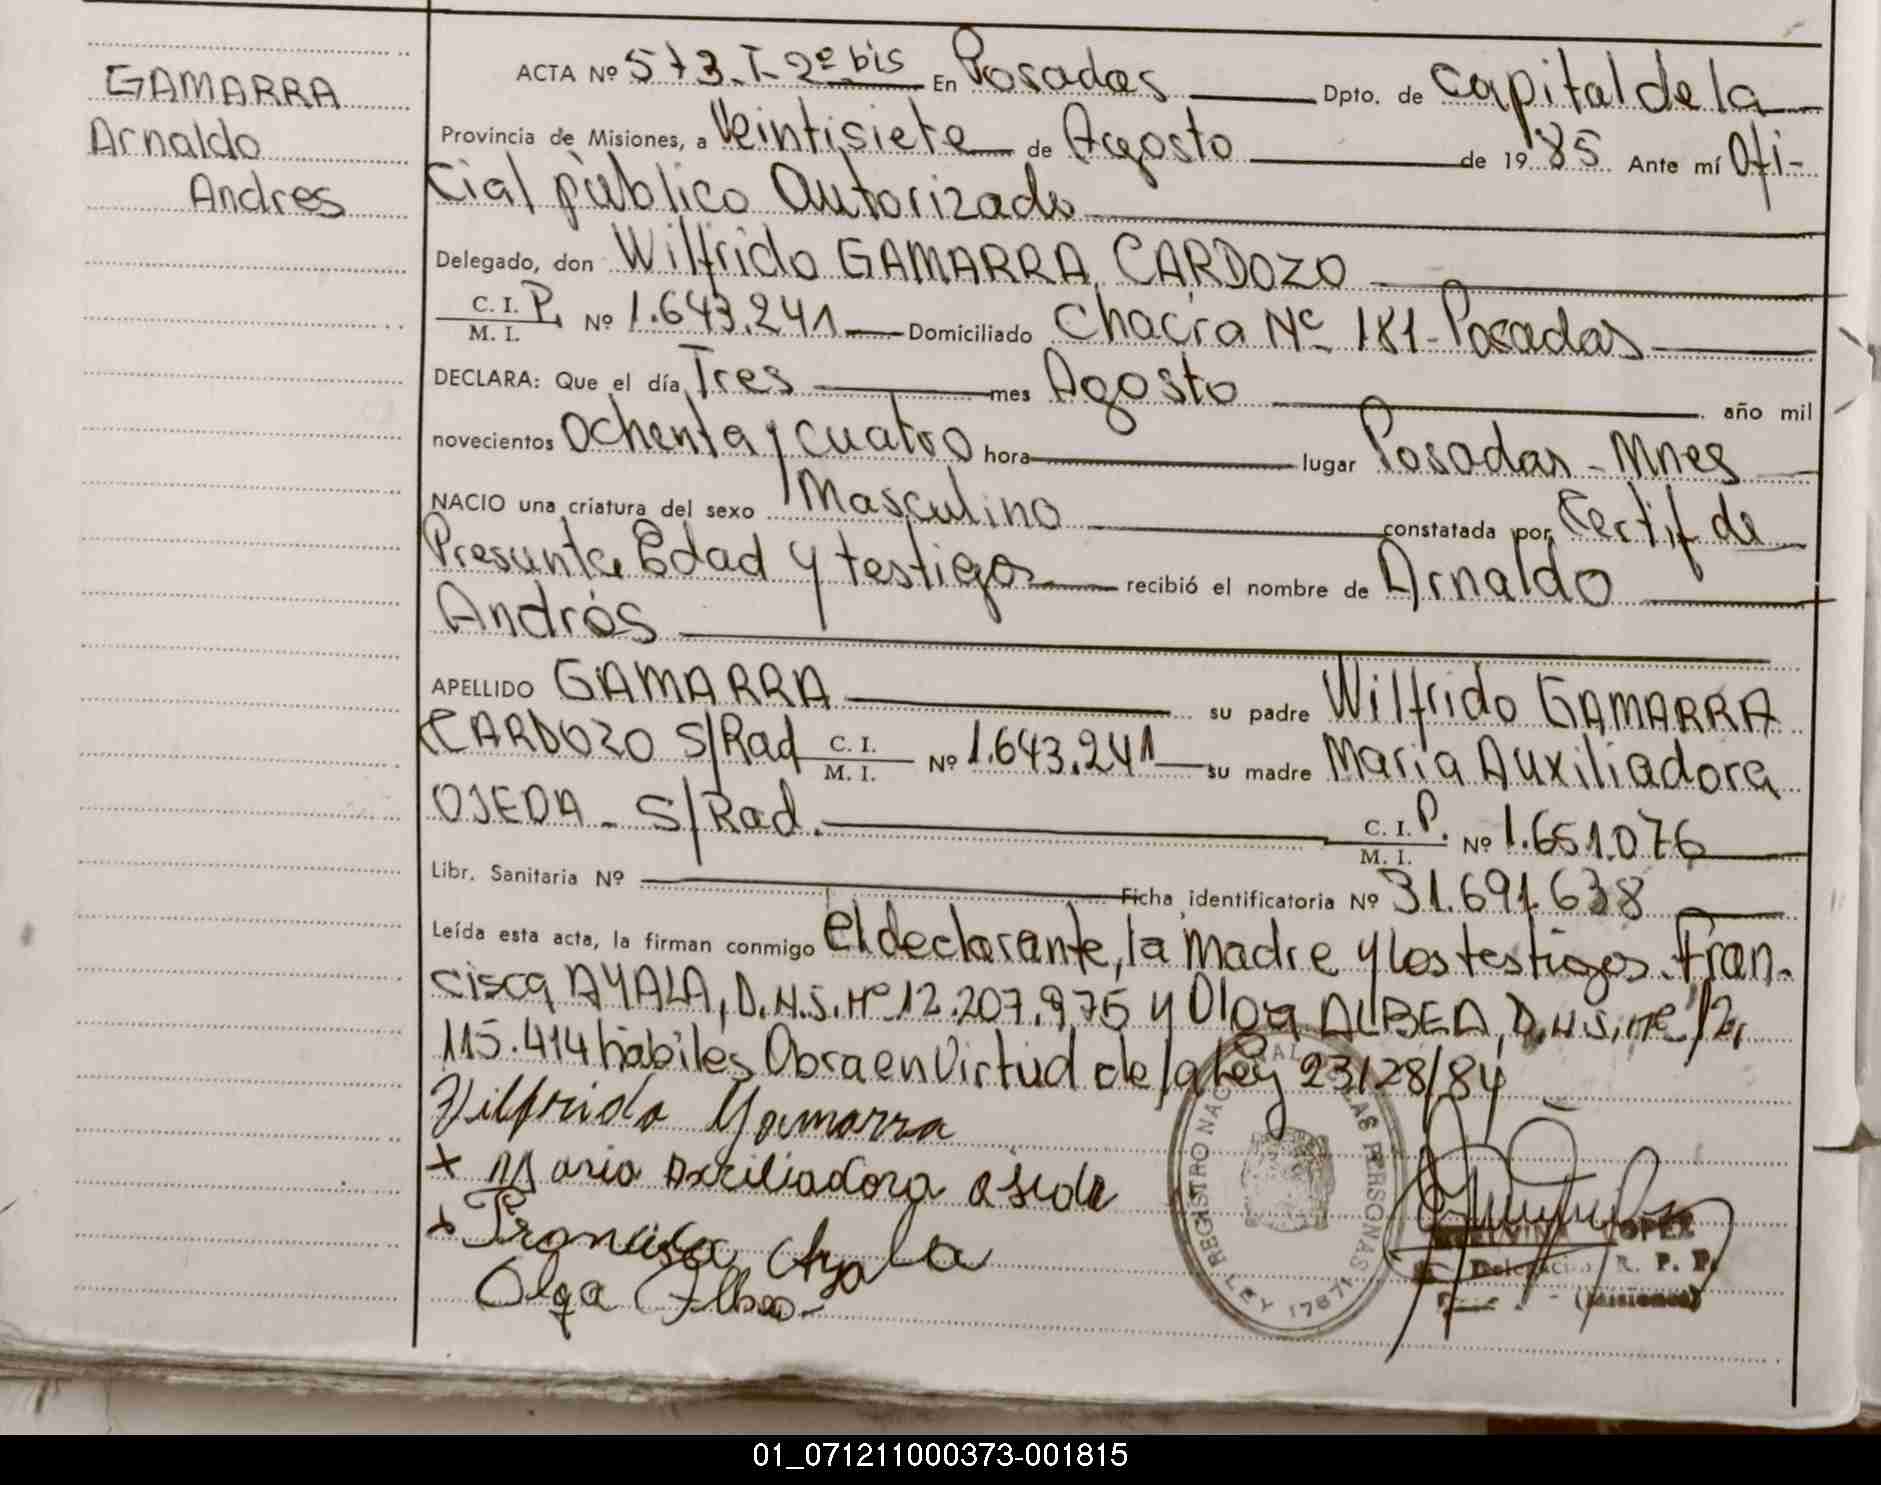 GAMARRA
Arnaldo
Andres
ACTA Nº 573-T-2º bis En Posadas Dpto. de Capital de la
Provincia de Misiones, a Veintisiete de Agosto de 1985 Ante mí Ofi-
cial público Autorizado
Delegado, don Wilfrido GAMARRA CARDOZO
C. I. P. / M. I. Nº 1.643.241 Domiciliado Chacra Nº 181-Posadas
DECLARA: Que el día Tres mes Agosto año mil
novecientos Ochenta y cuatro hora lugar Posadas - Mnes
NACIO una criatura del sexo Masculino constatada por Certif de
Presunta Edad y testigos recibió el nombre de Arnaldo
Andrés
APELLIDO GAMARRA su padre Wilfrido GAMARRA
CARDOZO S/Rad C. I. / M. I. Nº 1.643.241 su madre Maria Auxiliadora
OJEDA - S/Rad. C. I. P. / M. I. Nº 1.651.076
Libr. Sanitaria Nº Ficha identificatoria Nº 31.691.638
Leída esta acta, la firman conmigo el declarante, la Madre y los testigos. Fran-
cisca AYALA, D.N.I. Nº 12.207.975 y Olga ALBEA, D.N.I. Nº 12.
115.414 hábiles Obra en Virtud de la Ley 23128/84
Wilfrido Gamarra
x Maria Auxiliadora Ojeda
x Francisca Ayala
Olga Albea
REGISTRO NACIONAL DE LAS PERSONAS
LEY 17671
LOPEZ
Delegación R. P. P.
(Misiones)
01_071211000373-001815